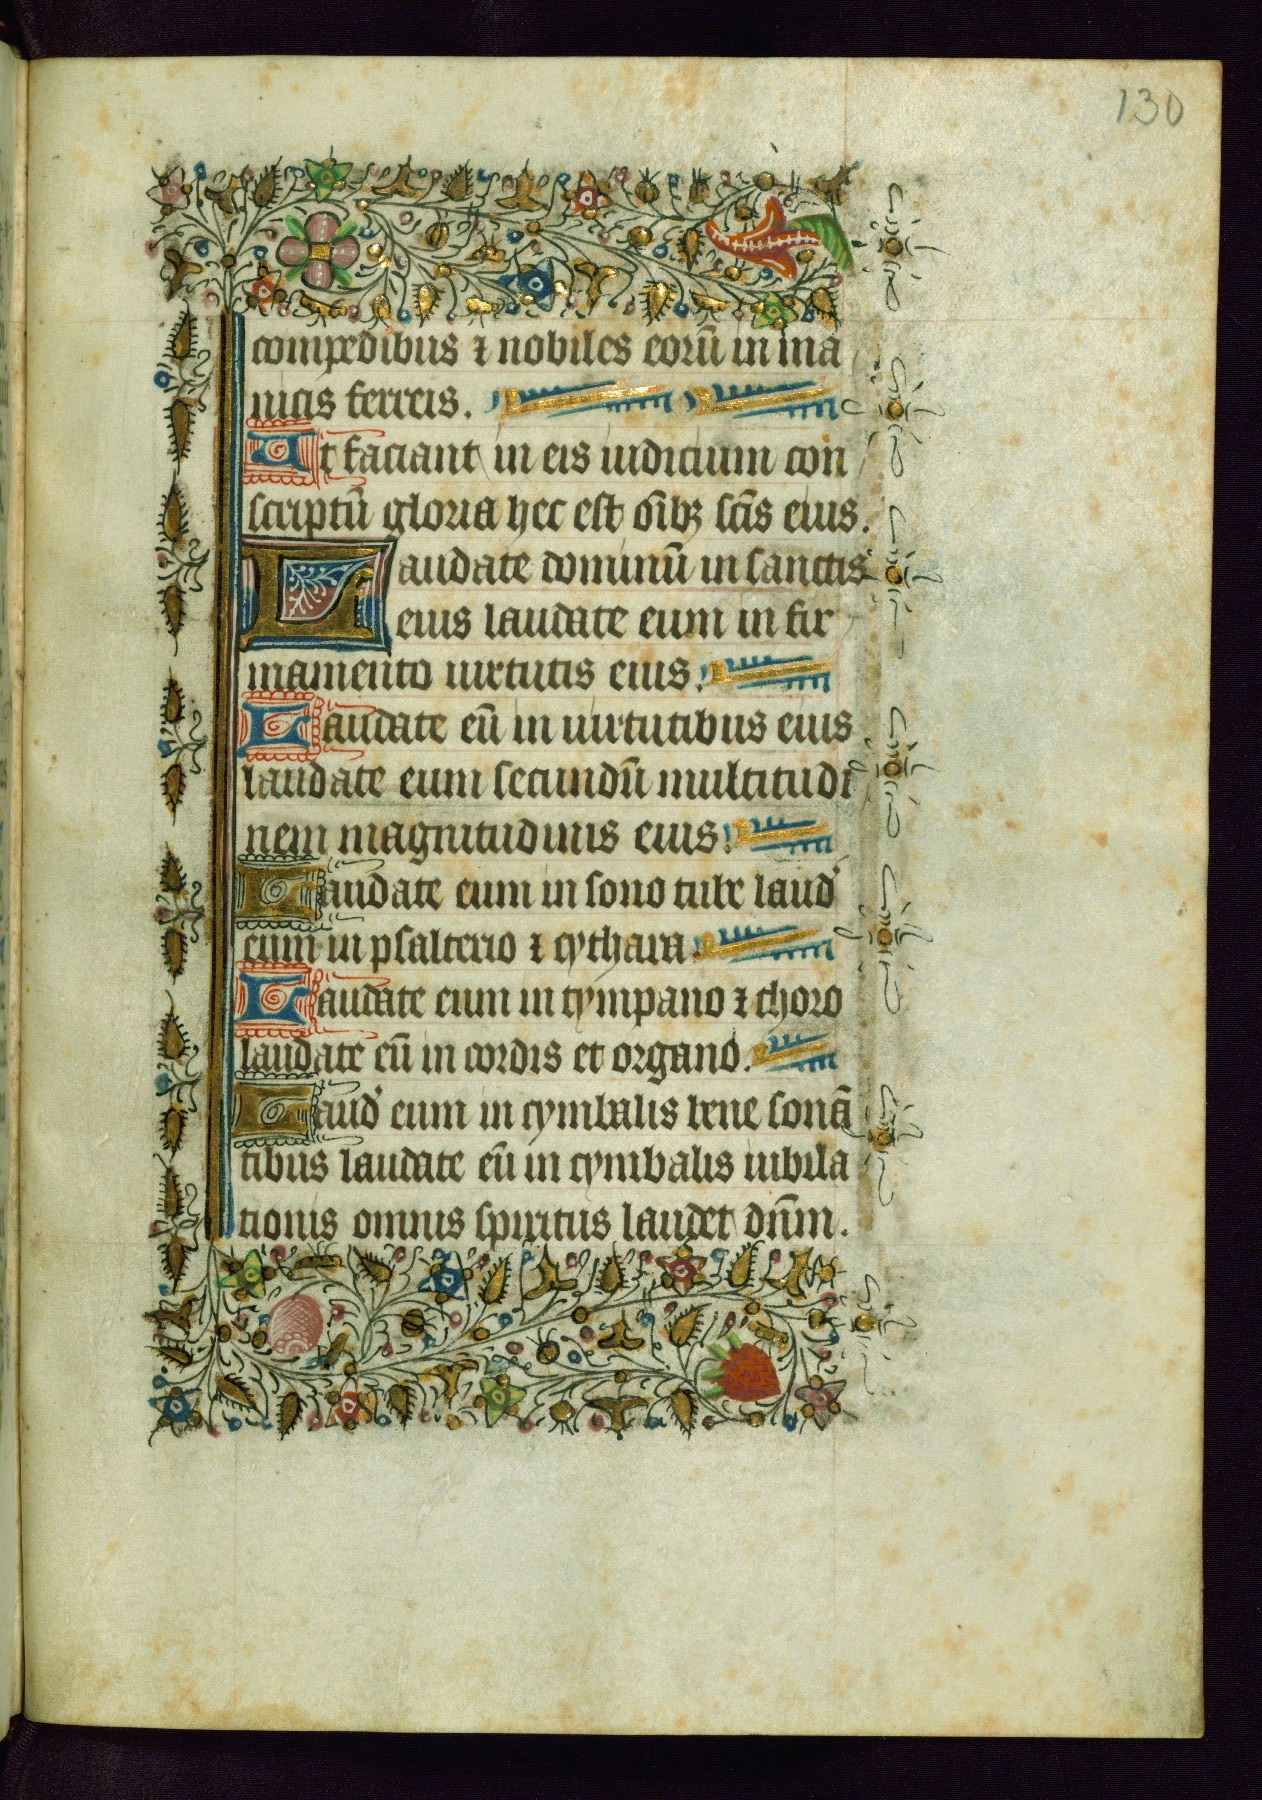 130
compedibus ⁊ nobiles eorū in ma
nicis ferreis.
Ut faciant in eis iudicium con
scriptū gloria hec est oīb(us) scīs eius.
Laudate dominū in sanctis
eius laudate eum in fir
mamento uirtutis eius.
Laudate eū in uirtutibus eius
laudate eum secundū multitudi
nem magnitudinis eius.
Laudate eum in sono tube laud'
eum in psalterio ⁊ cythara.
Laudate eum in tympano ⁊ choro
laudate eū in cordis et organo.
Laud' eum in cymbalis bene sonā
tibus laudate eū in cymbalis iubila
tionis omnis spiritus laudet dn̄m.